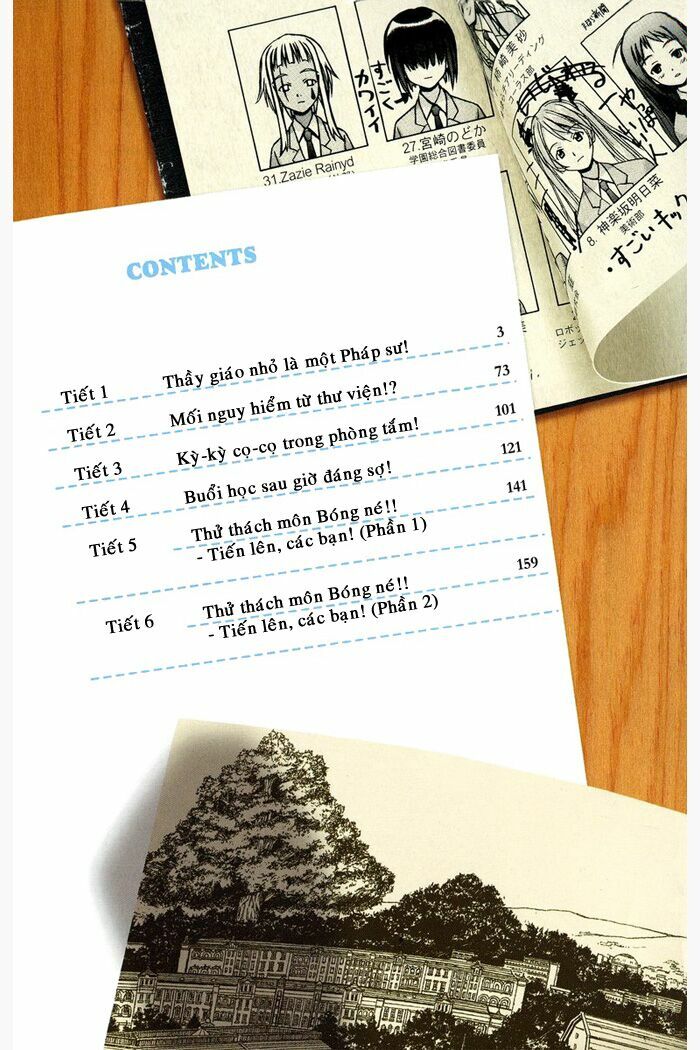 すごく
カワイイ
31.Zazie Rainyd
27.宮崎のどか
学園総合図書委員
柿崎美砂
チアリーディング
コーラス部
8. 神楽坂明日菜
美術部
・すごいキック
CONTENTS
Tiết 1 Thầy giáo nhỏ là một Pháp sư! 3
Tiết 2 Mối nguy hiểm từ thư viện!? 73
Tiết 3 Kỳ-kỳ cọ-cọ trong phòng tắm! 101
Tiết 4 Buổi học sau giờ đáng sợ! 121
Tiết 5 Thử thách môn Bóng né!! 141
- Tiến lên, các bạn! (Phần 1)
Tiết 6 Thử thách môn Bóng né!! 159
- Tiến lên, các bạn! (Phần 2)